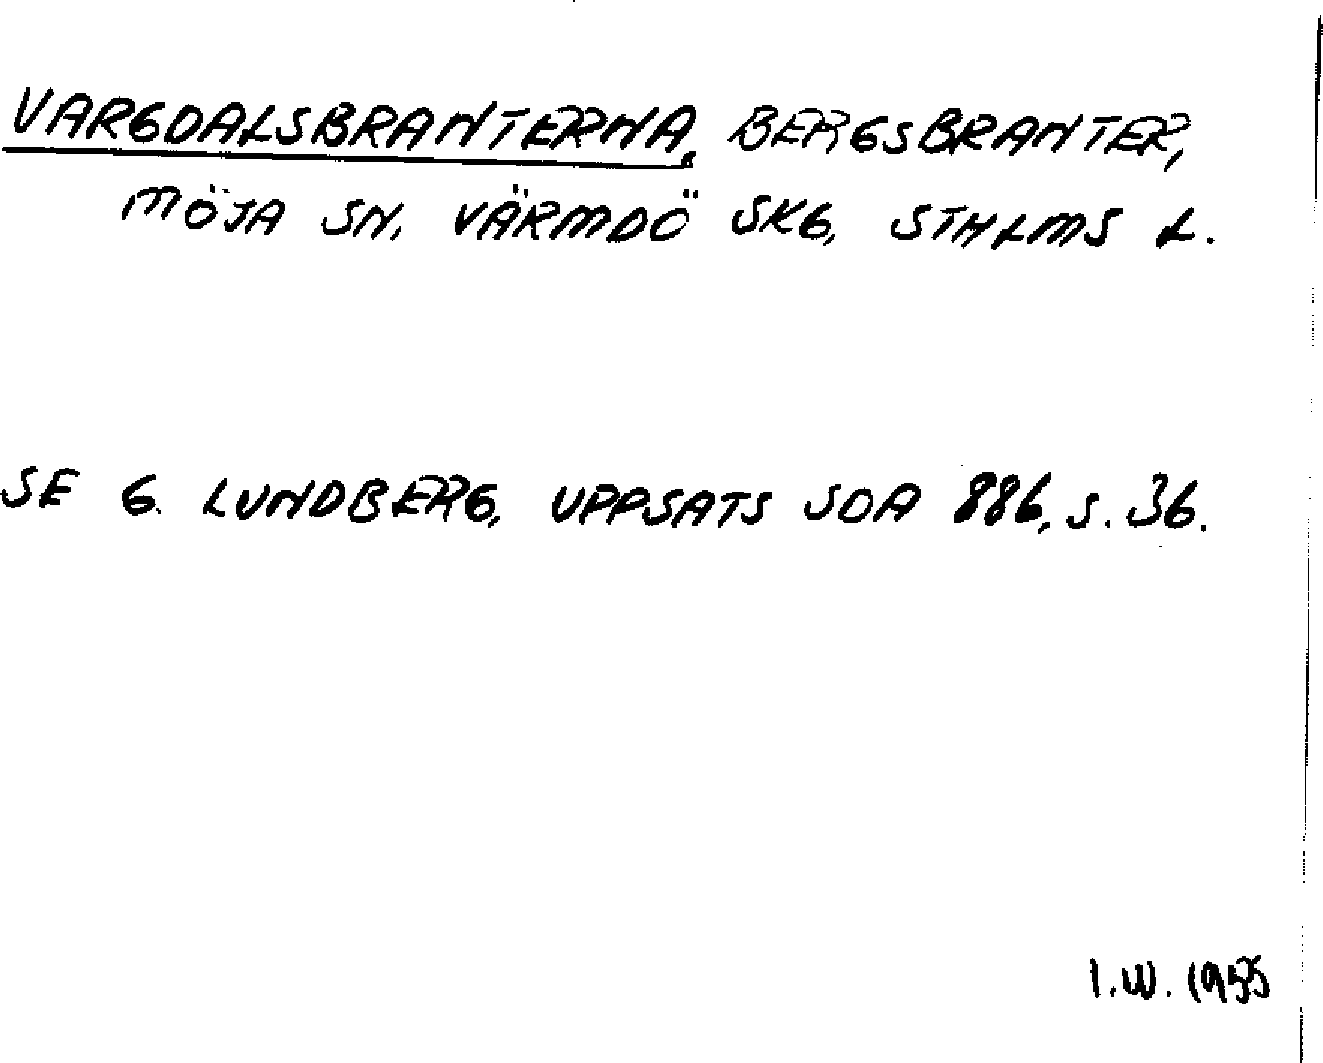 VARGDALSBRANTERNA, BERGSBRANTER,
MÖJA SN, VÄRMDÖ SKG, STHLMS L.
SE G. LUNDBERG, UPPSATS SOA 886, S. 36.
I.W. 1955